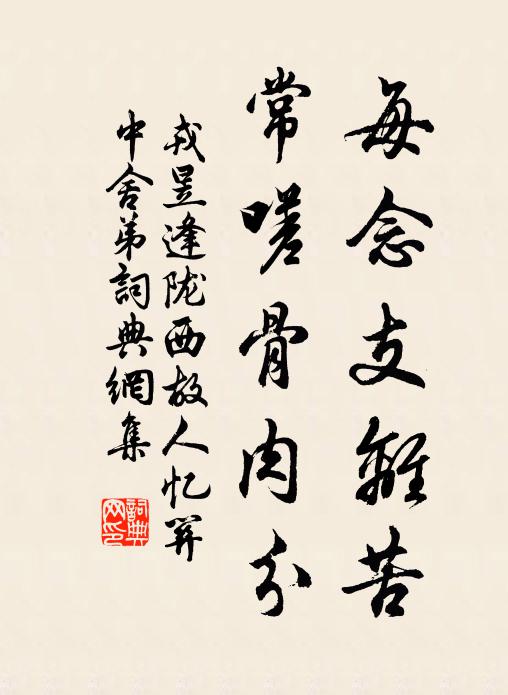 每念支離苦
常嗟骨肉分
戎昱逢陇西故人忆關
中舍弟詞典網集
詞典
网印